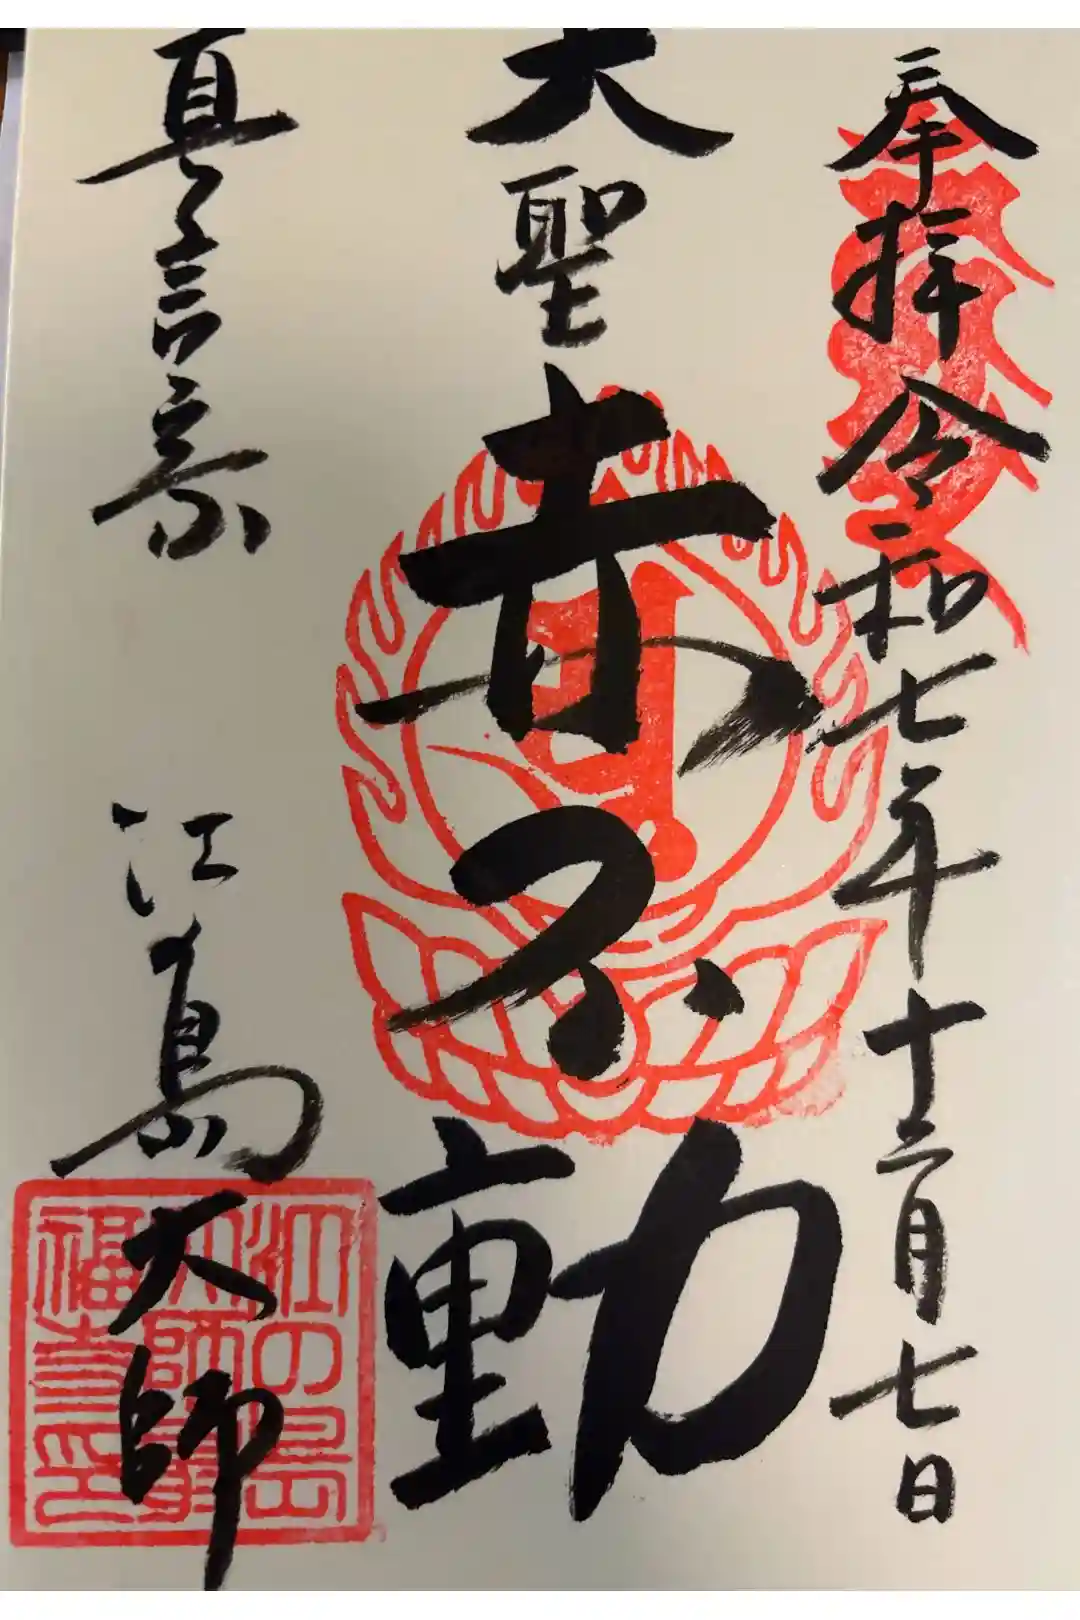 奉拝 令和七年十二月七日
大聖 赤不動
真言宗 江島大師
江の島
大師
福寺印